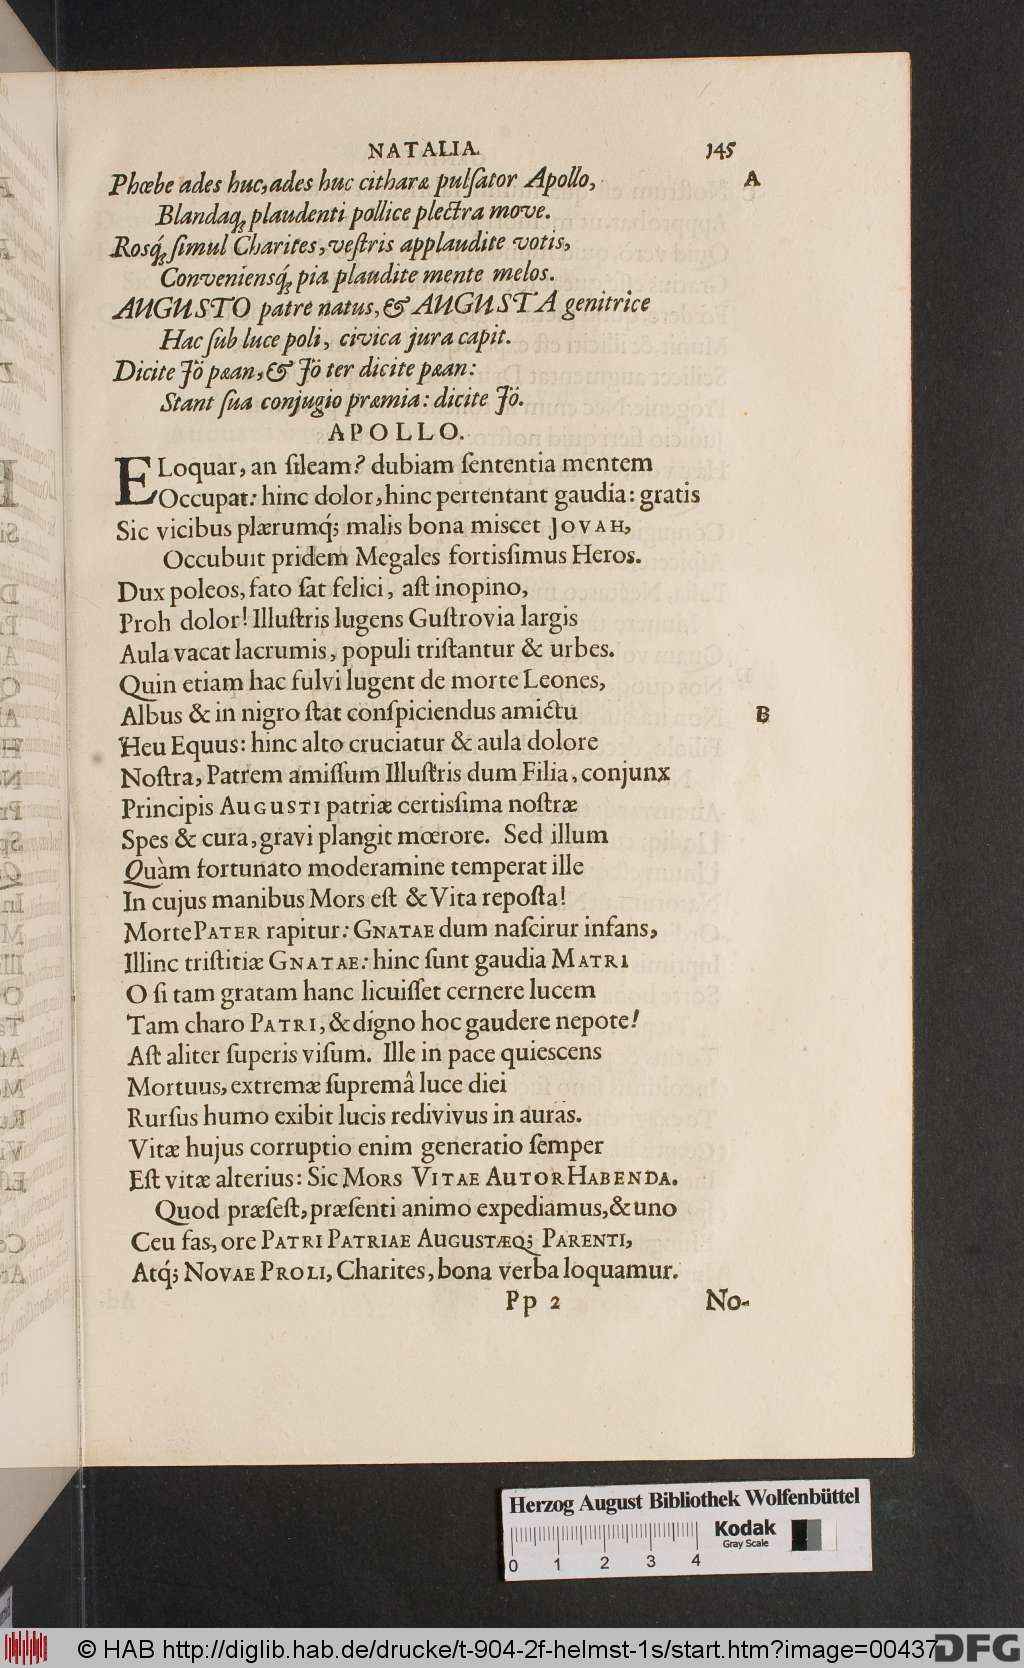 NATALIA. 145
Phœbe ades huc, ades huc citharæ pulſator Apollo, A
Blandaq; plaudenti pollice plectra move.
Rosq́; ſimul Charites, veſtris applaudite votis,
Conveniensq́; pia plaudite mente melos.
AUGUSTO patre natus, & AUGUSTA genitrice
Hac ſub luce poli, civica jura capit.
Dicite Jö pæan, & Jö ter dicite pæan:
Stant ſua conjugio præmia: dicite Jö.
APOLLO.
ELoquar, an ſileam? dubiam ſententia mentem
Occupat: hinc dolor, hinc pertentant gaudia: gratis
Sic vicibus plærumq́; malis bona miscet JOVAH,
Occubuit pridem Megales fortisſimus Heros.
Dux poleos, fato ſat felici, aſt inopino,
Proh dolor! Illuſtris lugens Guſtrovia largis
Aula vacat lacrumis, populi triſtantur & urbes.
Quin etiam hac fulvi lugent de morte Leones,
Albus & in nigro ſtat conſpiciendus amictu B
Heu Equus: hinc alto cruciatur & aula dolore
Noſtra, Patrem amiſſum Illuſtris dum Filia, conjunx
Principis AUGUSTI patriæ certisſima noſtræ
Spes & cura, gravi plangit mœrore. Sed illum
Quàm fortunato moderamine temperat ille
In cujus manibus Mors eſt & Vita repoſta!
Morte PATER rapitur: GNATAE dum naſcirur infans,
Illinc triſtitiæ GNATAE: hinc ſunt gaudia MATRI
O ſi tam gratam hanc licuiſſet cernere lucem
Tam charo PATRI, & digno hoc gaudere nepote!
Aſt aliter ſuperis viſum. Ille in pace quiescens
Mortuus, extremæ ſupremâ luce diei
Rurſus humo exibit lucis redivivus in auras.
Vitæ hujus corruptio enim generatio ſemper
Eſt vitæ alterius: Sic MORS VITAE AUTOR HABENDA.
Quod præſeſt, præſenti animo expediamus, & uno
Ceu fas, ore PATRI PATRIAE AUGUSTÆQ; PARENTI,
Atq́; NOVAE PROLI, Charites, bona verba loquamur.
Pp 2 No-
Herzog August Bibliothek Wolfenbüttel
Kodak
Gray Scale
0 1 2 3 4
© HAB http://diglib.hab.de/drucke/t-904-2f-helmst-1s/start.htm?image=00437
DFG